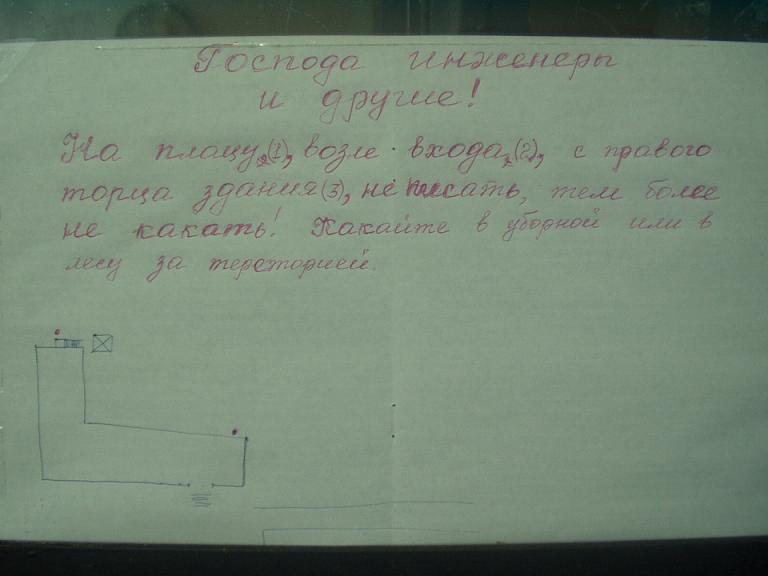 Господа инженеры
и другие!
На плацу (1), возле входа (2), с правого
торца здания (3), не писать, тем более
не какать! Какайте в уборной или в
лесу за територией.